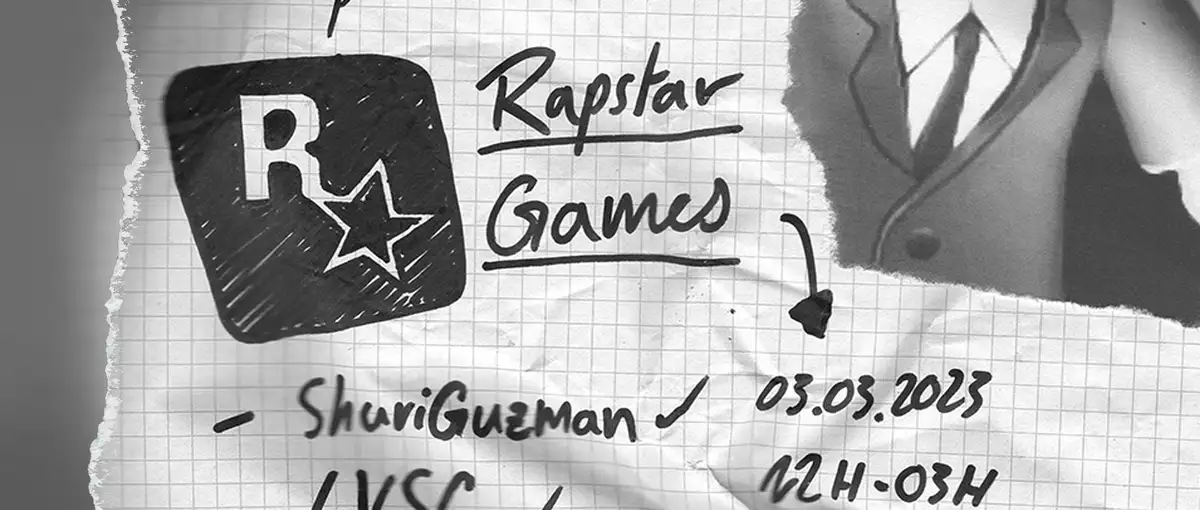 R
Rapstar
Games
- ShuriGuzman ✓ 03.03.2023
12H-03H